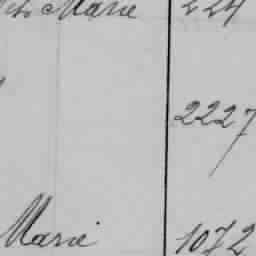 Marie 224
2227
Marie 1072